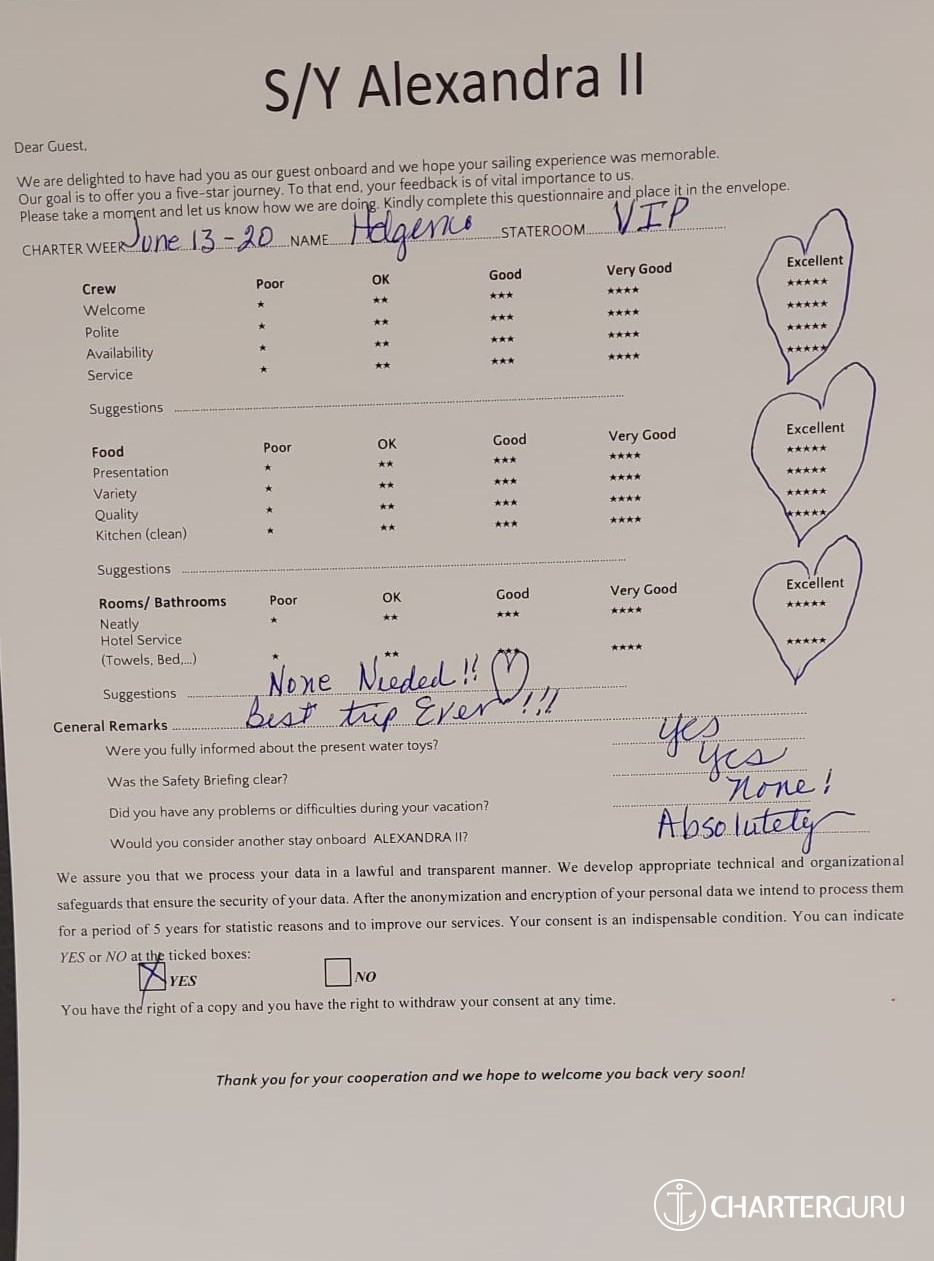 S/Y Alexandra II
Dear Guest,
We are delighted to have had you as our guest onboard and we hope your sailing experience was memorable.
Our goal is to offer you a five-star journey. To that end, your feedback is of vital importance to us.
Please take a moment and let us know how we are doing. Kindly complete this questionnaire and place it in the envelope.
CHARTER WEEK June 13-20 NAME STATEROOM VIP
Crew Poor OK Good Very Good Excellent
Welcome ★ ★★ ★★★ ★★★★ ★★★★★
Polite ★ ★★ ★★★ ★★★★ ★★★★★
Availability ★ ★★ ★★★ ★★★★ ★★★★★
Service ★ ★★ ★★★ ★★★★ ★★★★★
Suggestions
Food Poor OK Good Very Good Excellent
Presentation ★ ★★ ★★★ ★★★★ ★★★★★
Variety ★ ★★ ★★★ ★★★★ ★★★★★
Quality ★ ★★ ★★★ ★★★★ ★★★★★
Kitchen (clean) ★ ★★ ★★★ ★★★★ ★★★★★
Suggestions
Rooms/ Bathrooms Poor OK Good Very Good Excellent
Neatly ★ ★★ ★★★ ★★★★ ★★★★★
Hotel Service
(Towels, Bed,...) ★ ★★ ★★★ ★★★★ ★★★★★
Suggestions None Needed!!
General Remarks Best trip Ever!!!
Were you fully informed about the present water toys? yes
Was the Safety Briefing clear? yes
Did you have any problems or difficulties during your vacation? none!
Would you consider another stay onboard ALEXANDRA II? Absolutely
We assure you that we process your data in a lawful and transparent manner. We develop appropriate technical and organizational
safeguards that ensure the security of your data. After the anonymization and encryption of your personal data we intend to process them
for a period of 5 years for statistic reasons and to improve our services. Your consent is an indispensable condition. You can indicate
YES or NO at the ticked boxes:
YES NO
You have the right of a copy and you have the right to withdraw your consent at any time.
Thank you for your cooperation and we hope to welcome you back very soon!
CHARTERGURU